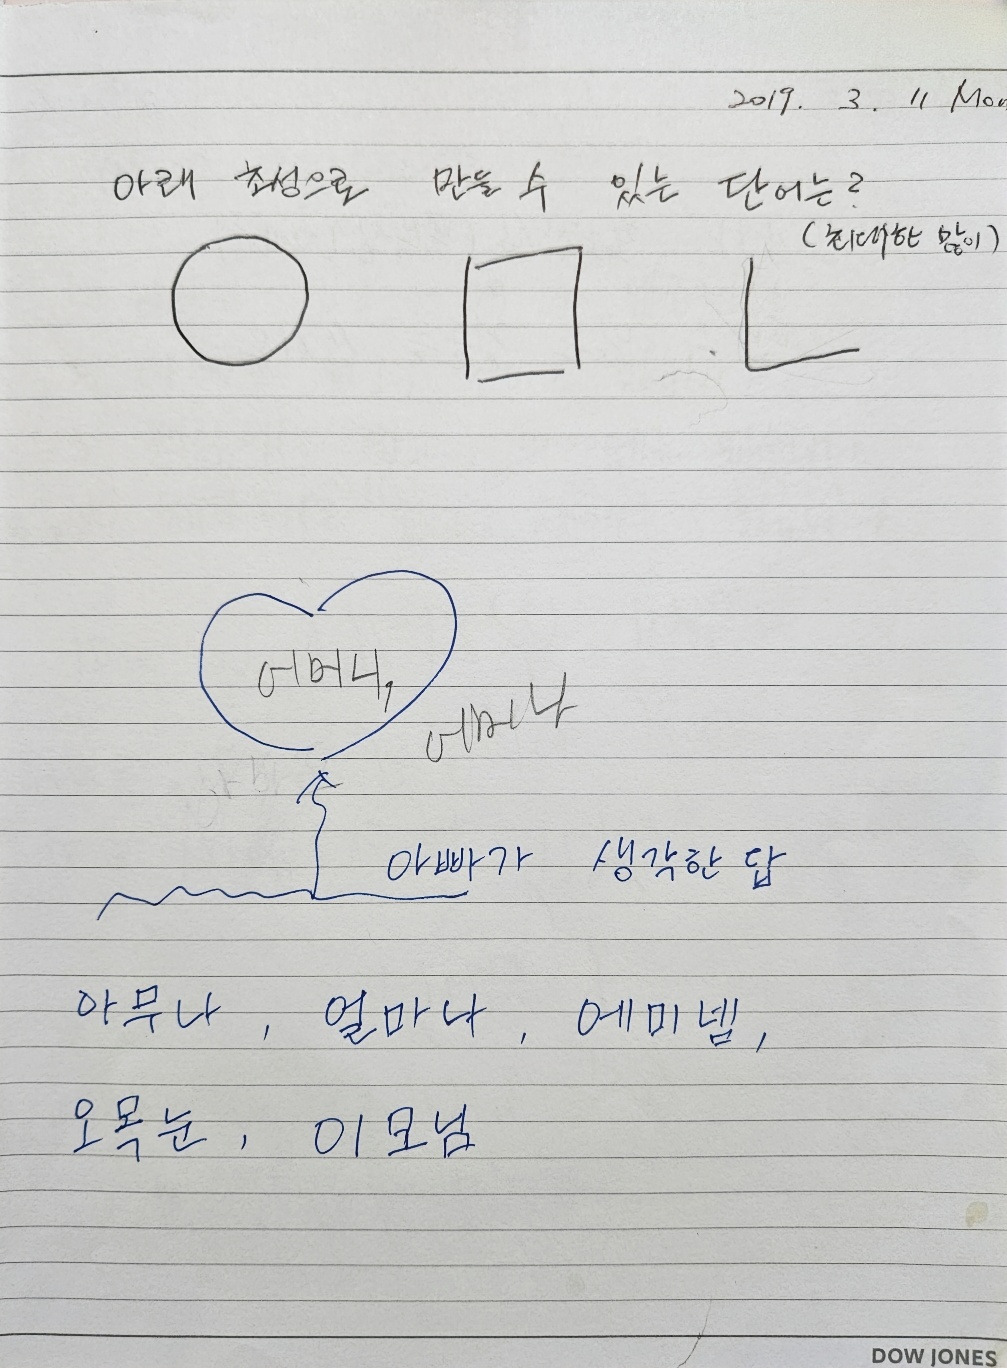 2019. 3. 11 Mon
아래 초성으로 만들 수 있는 단어는?
(최대한 많이)
ㅇ ㅁ ㄴ
어머니,
어머나
아빠가 생각한 답
아무나, 얼마나, 에미넴,
오목눈, 이모님
DOW JONES